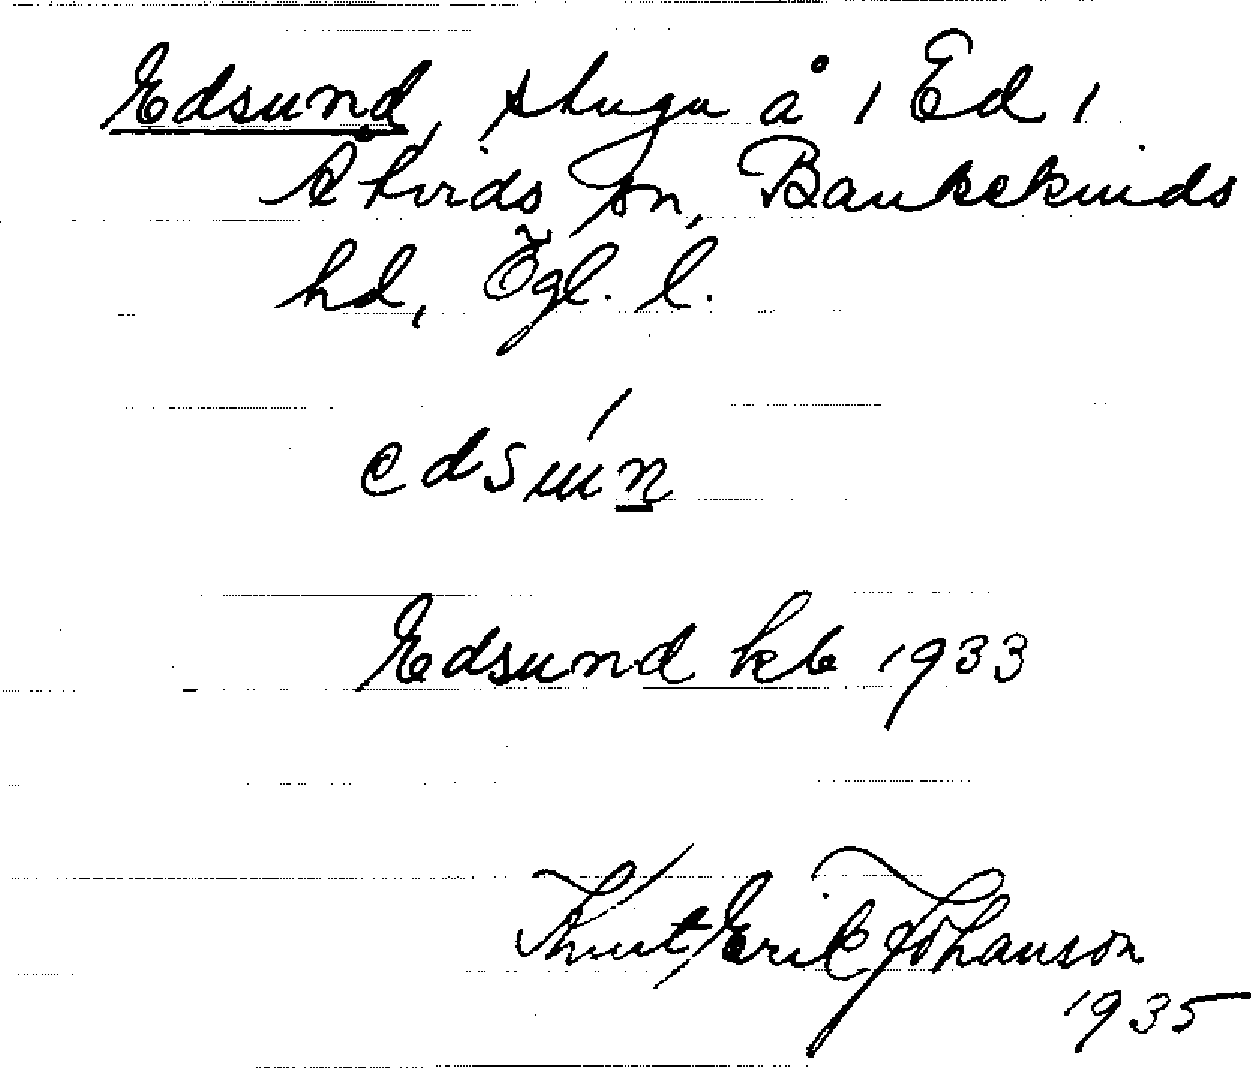 Edsund, stuga å 1 Ed 1
Ekvids sn, Bankekinds
hd, Ögl. l.
edsuń
Edsund kb 1933
Knut Erik Johanson
1935